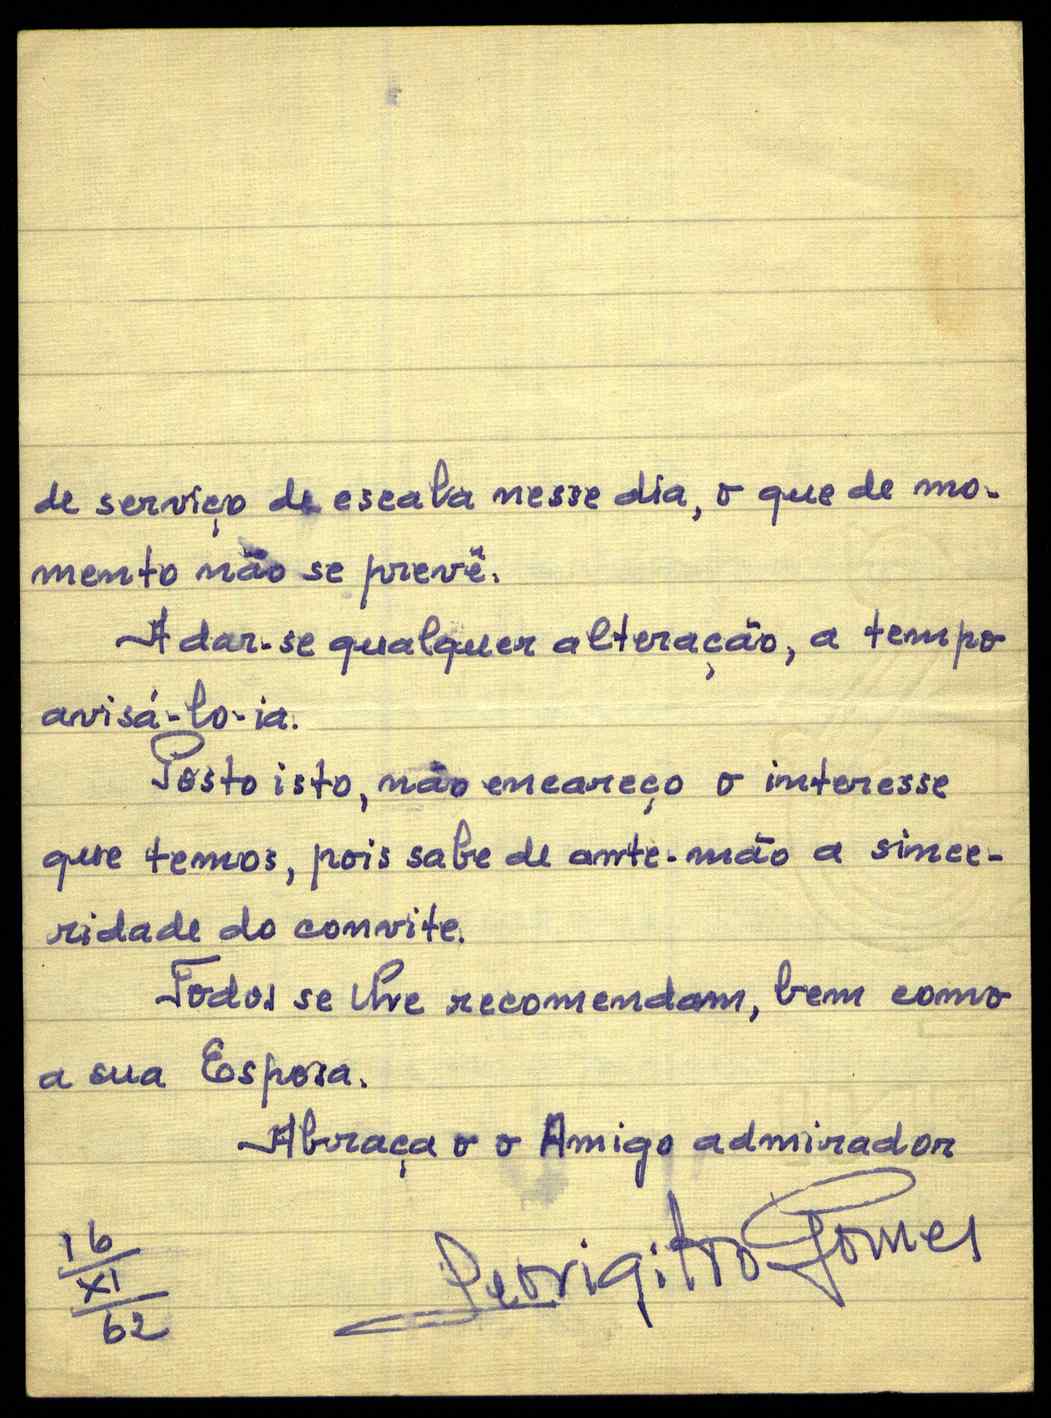 de serviço de escala nesse dia, o que de mo-
mento não se prevê.
A dar-se qualquer alteração, a tempo
avisá-lo-ia.
Posto isto, não encareço o interesse
que temos, pois sabe de ante-mão a since-
ridade do convite.
Todos se lhe recomendam, bem como
a sua Esposa.
Abraça o o Amigo admirador
Leovigildo Gomes
16
XI
62